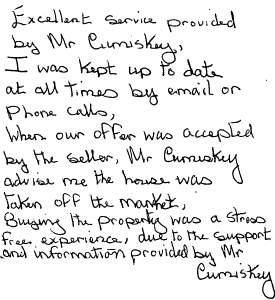 Excellent service provided
by Mr Cumiskey,
I was kept up to date
at all times by email or
Phone calls,
When our offer was accepted
by the seller, Mr Cumiskey
advise me the house was
taken off the market,
Buying the property was a stress
free experience, due to the support
and information provided by Mr
Cumiskey